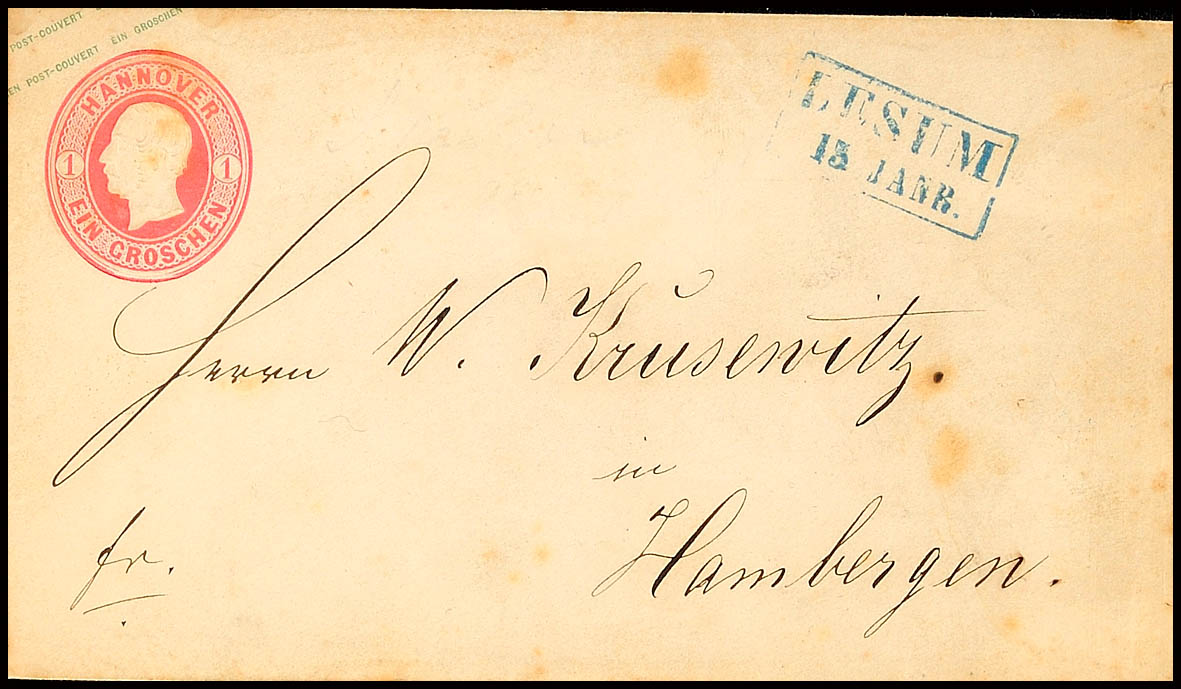 POST-COUVERT E
EN POST-COUVERT EIN GROSCHEN
HANNOVER
1 1
EIN GROSCHEN
LESUM
15 JANR.
Herrn W. Krusewitz.
in
Hambergen.
fr.